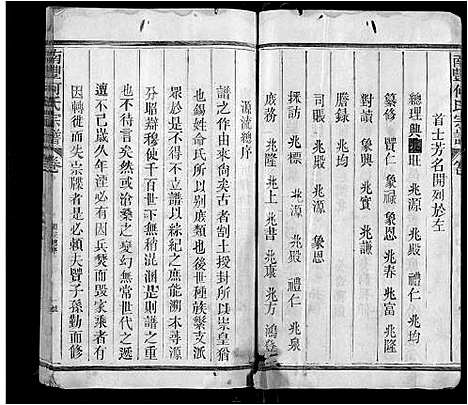 南豐何氏宗譜 卷
首士芳名開列於左
總理 興 兆 兆源 兆隆
纂修 賢仁 象恩 兆春 兆富 兆隆
對讀 象興 兆賓 兆謙
謄錄 兆均
司賬 兆殿 兆源 象恩
採訪 兆標 兆源 禮仁 兆殿
庶務 兆隆 兆上 兆書 兆康 兆方 鴻登
源流總序
譜之作由來尙矣古者割土授封所以崇皇猶
也錫姓俞氏所以别庶類也後世種族繁支派
衆於是不得不立譜以綜紀之庶能溯本尋源
分昭辯穆使千百世下不稍混淆是則譜之重
也不待言矣然滄桑之變幻無常世代之遞
遭不已歲久年湮必有因兵焚而毀家乘者有
因轉徙而失宗牒者是必賴夫賢子孫勤而修
南豐何氏宗譜 卷